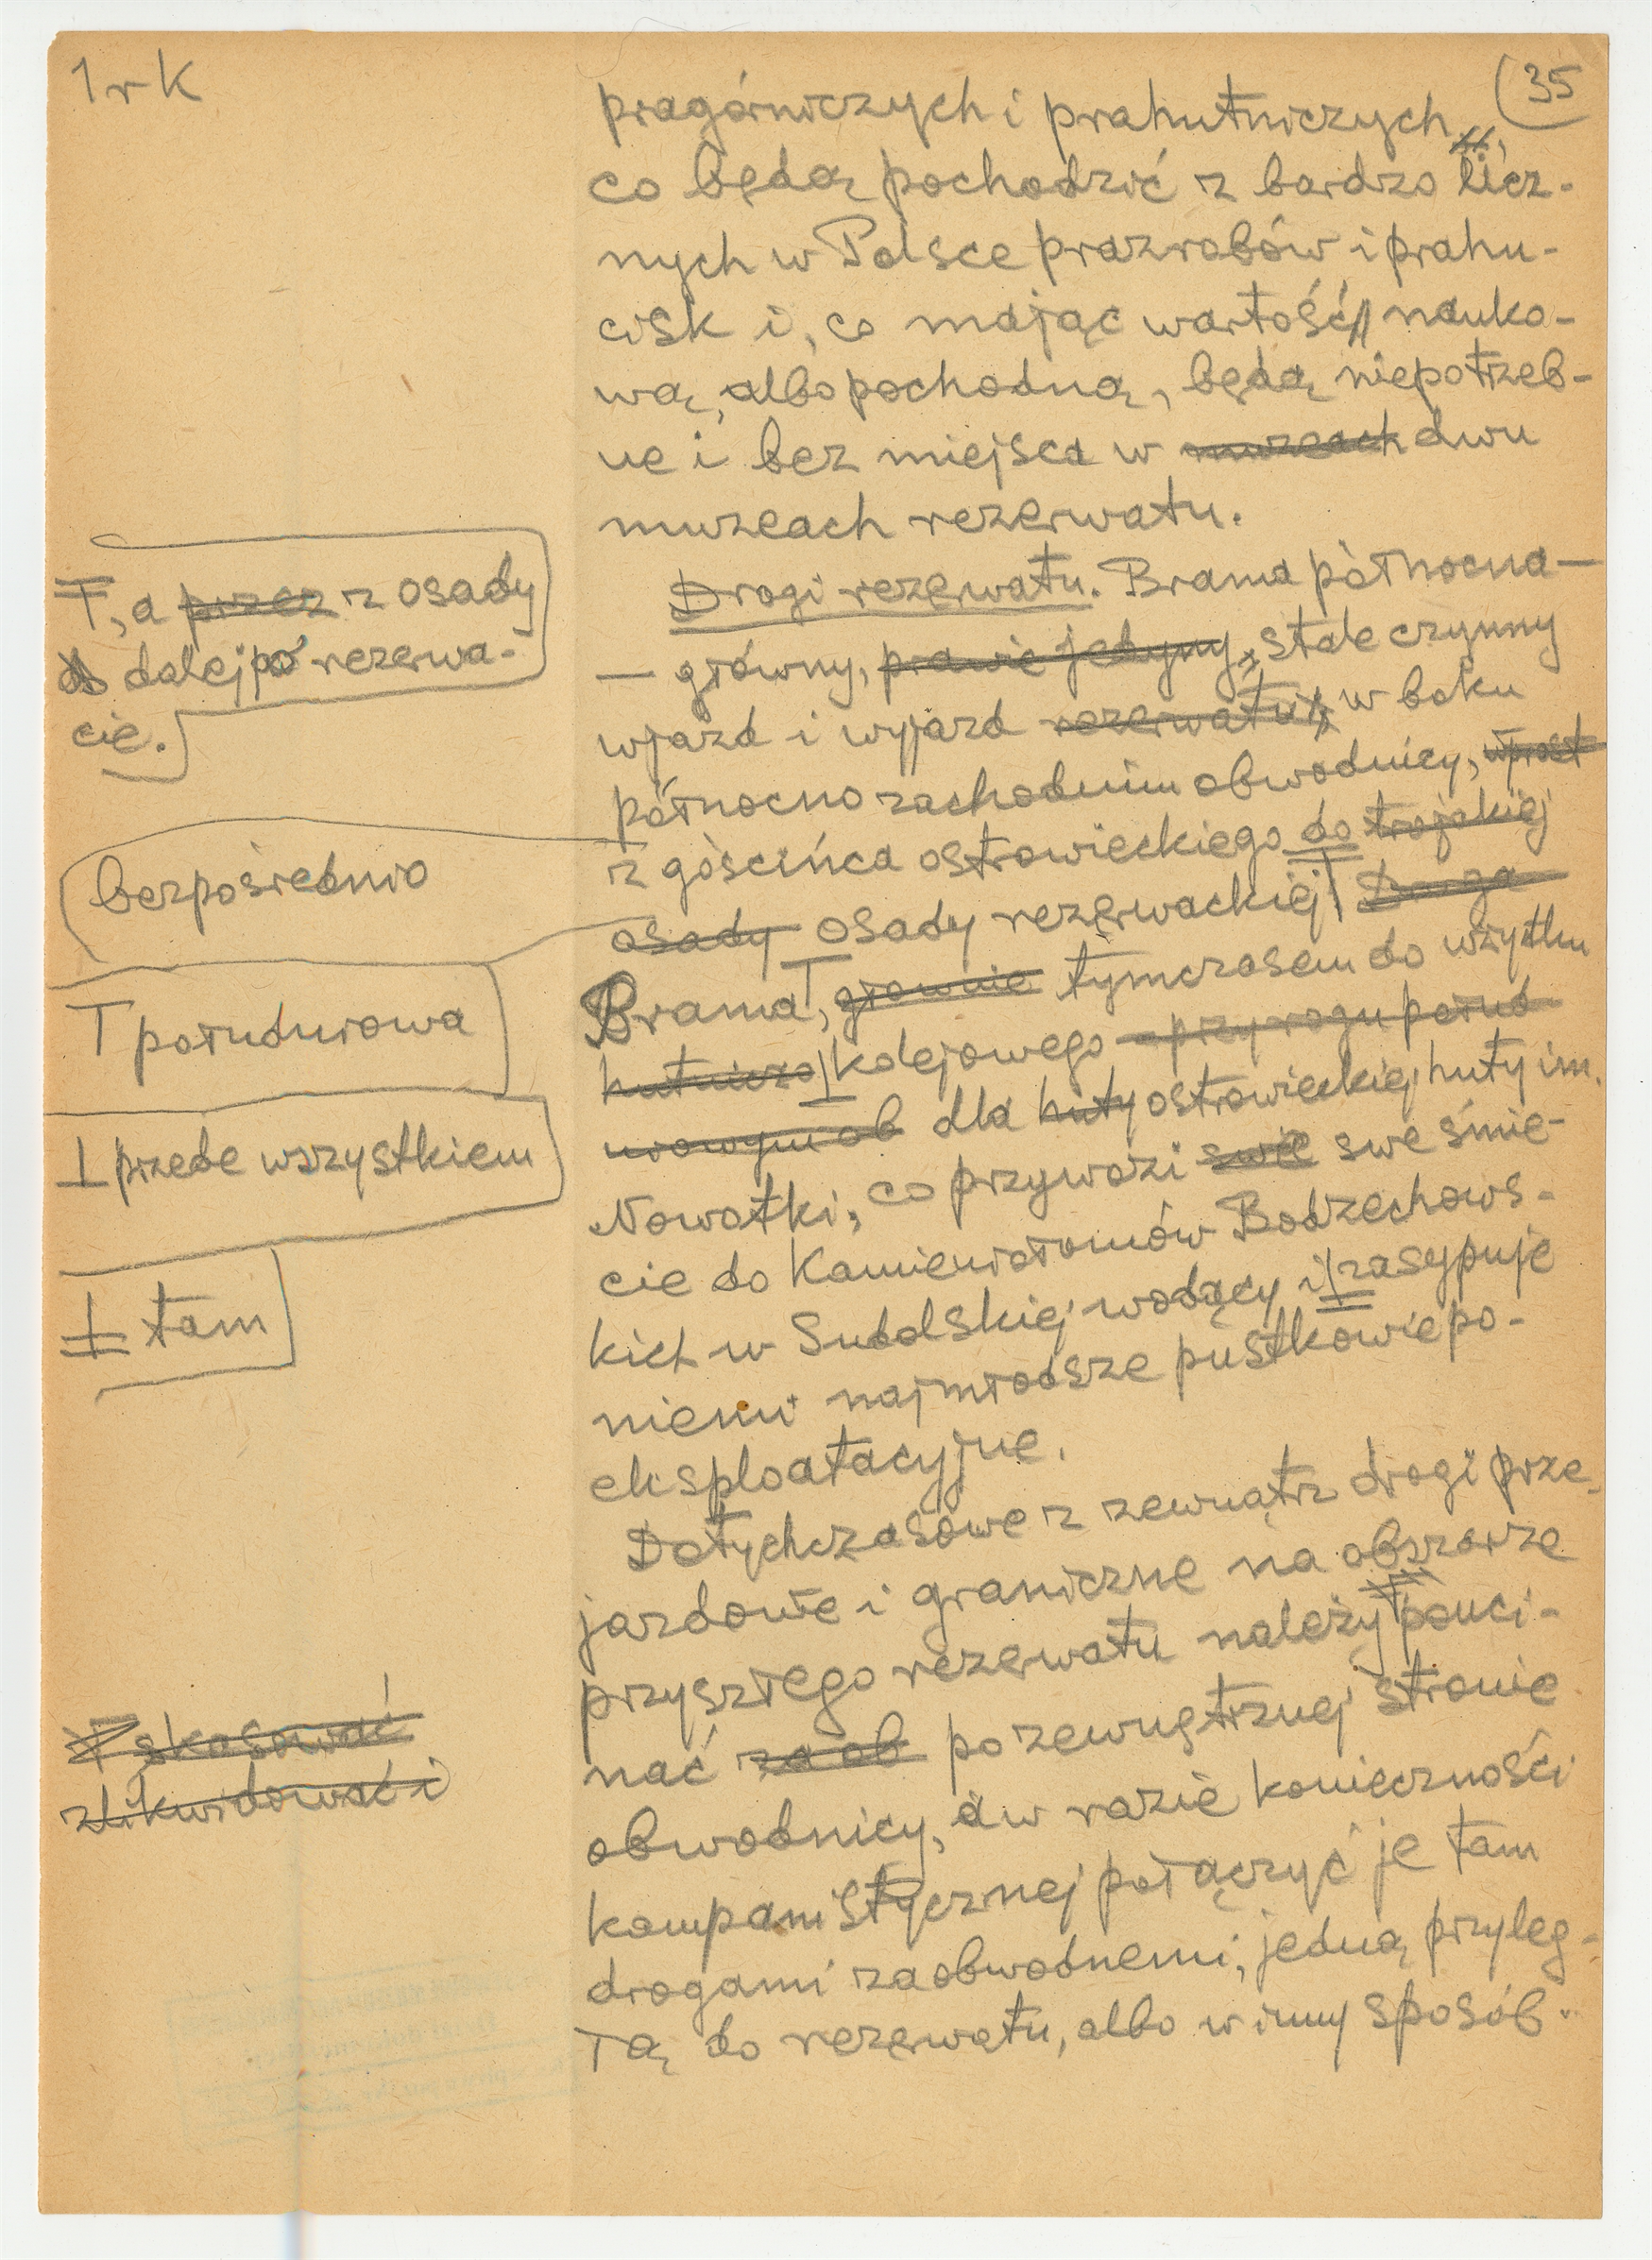 1 r K
35
pragórniczych i prahutniczych,
co będą pochodzić z bardzo licz-
nych w Polsce prazrobów i prahu-
cisk i, co mając wartość nauko-
wą, albo pochodną, będą niepotrzeb-
ne i bez miejsca w muzeach dwu
muzeach rezerwatu.
Drogi rezerwatu. Brama północna —
— główny, prawie jedyny, stale czynny
wjazd i wyjazd rezerwatu w boku
północno zachodnim obwodnicy, wprost
z gościńca ostrowieckiego do trojakiej
osady osady rezerwackiej Druga
Brama, głownie tymczasem do użytku
hutniczo kolejowego – przy rogu połud
niowym ob dla huty ostrowieckiej huty im.
Nowotki, co przywozi swe śmie-
cie do Kamieniołomów Bodzechows-
kich w Sudolskiej wodący i zasypuje
niemi najmłodsze pustkowie po-
eksploatacyjne.
Dotychczasowe z zewnątrz drogi prze-
jazdowe i graniczne na obszarze
przyszłego rezerwatu należy pouci-
nać za ob po zewnętrznej stronie
obwodnicy, a w razie konieczności
kompanistycznej połączyć je tam
drogami zaobwodnemi, jedną przyleg-
łą do rezerwatu, albo w inny sposób.
T, a przez z osady
dalej po rezerwa-
cie.
bezpośrednio
T południowa
⊥ przede wszystkiem
⊥ tam
skasować
zlikwidować i